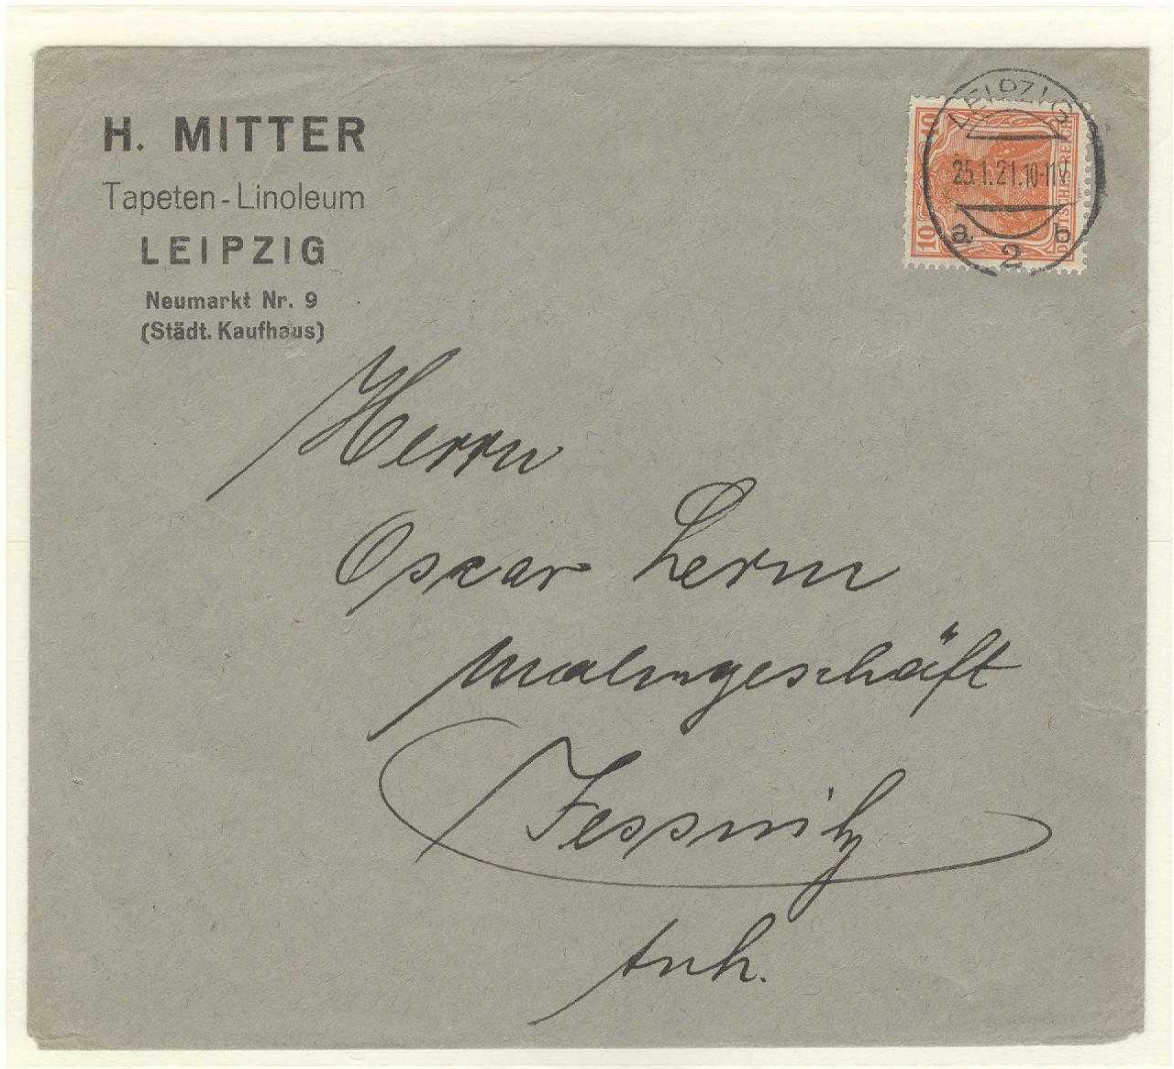 H. MITTER
Tapeten-Linoleum
LEIPZIG
Neumarkt Nr. 9
(Städt. Kaufhaus)
10
10
DEUTSCHES REICH
LEIPZIG
25.1.21.10-11V
a 2 b
Herrn
Oscar Lerm
Malergeschäft
Jessnitz
Anh.